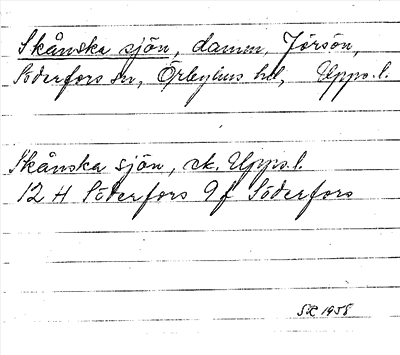 Skånska sjön, damm, Jörsön,
Söderfors sn, Örbyhus hd, Upps. l.
Skånska sjön, ek. Upps. l.
12 H Söderfors 9 f Söderfors
SK 1958